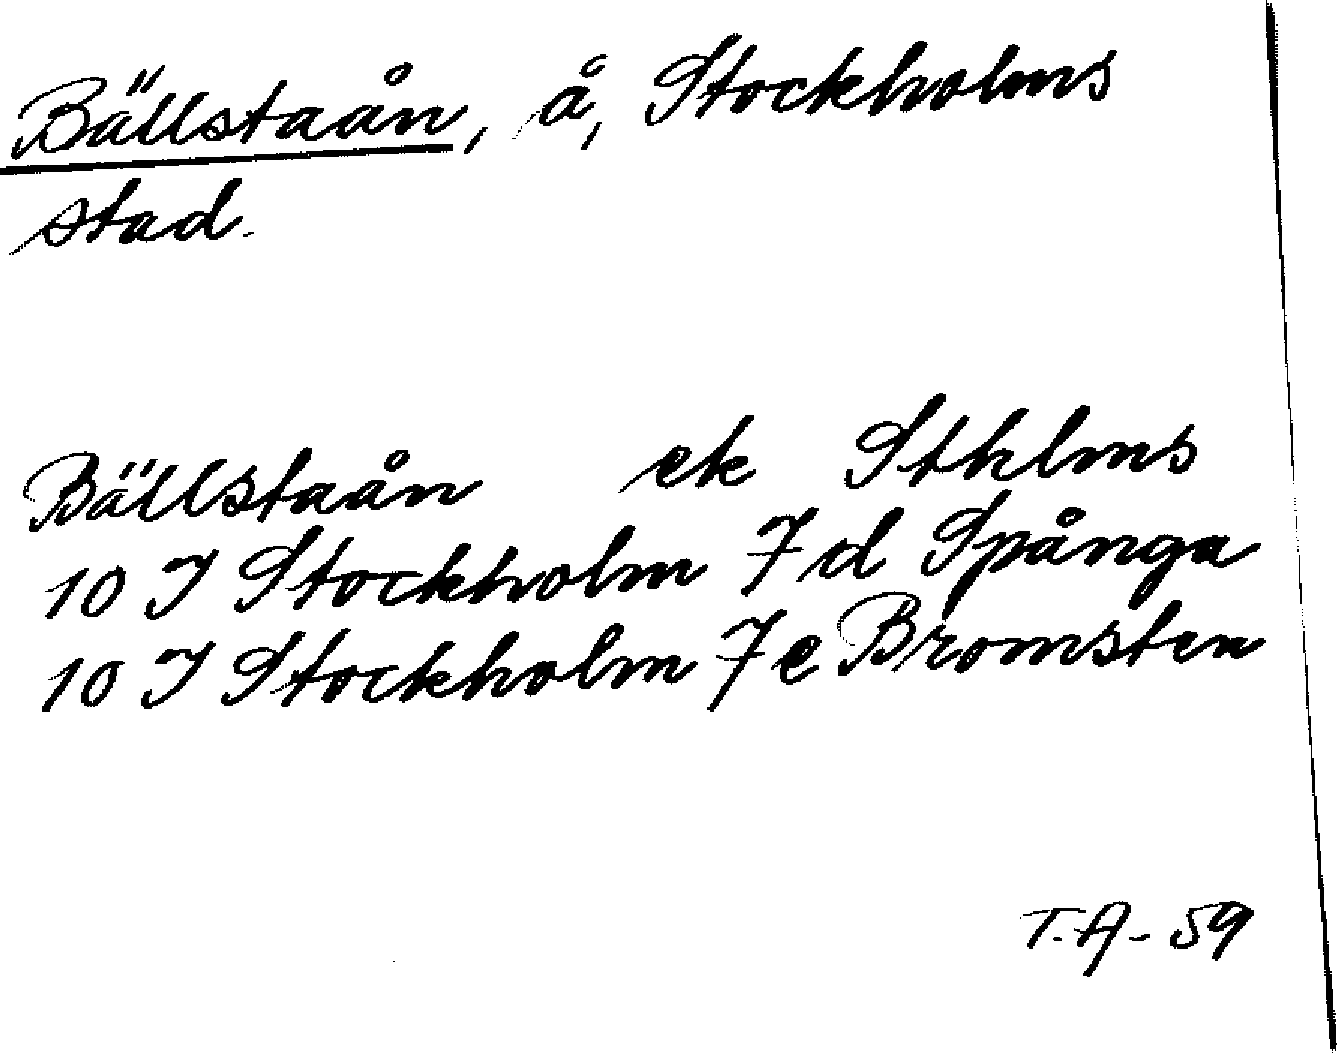 Bällstaån, å, Stockholms
stad.
Bällstaån ek Sthlms
10 I Stockholm 7d Spånga
10 I Stockholm 7e Bromsten
T.A-59